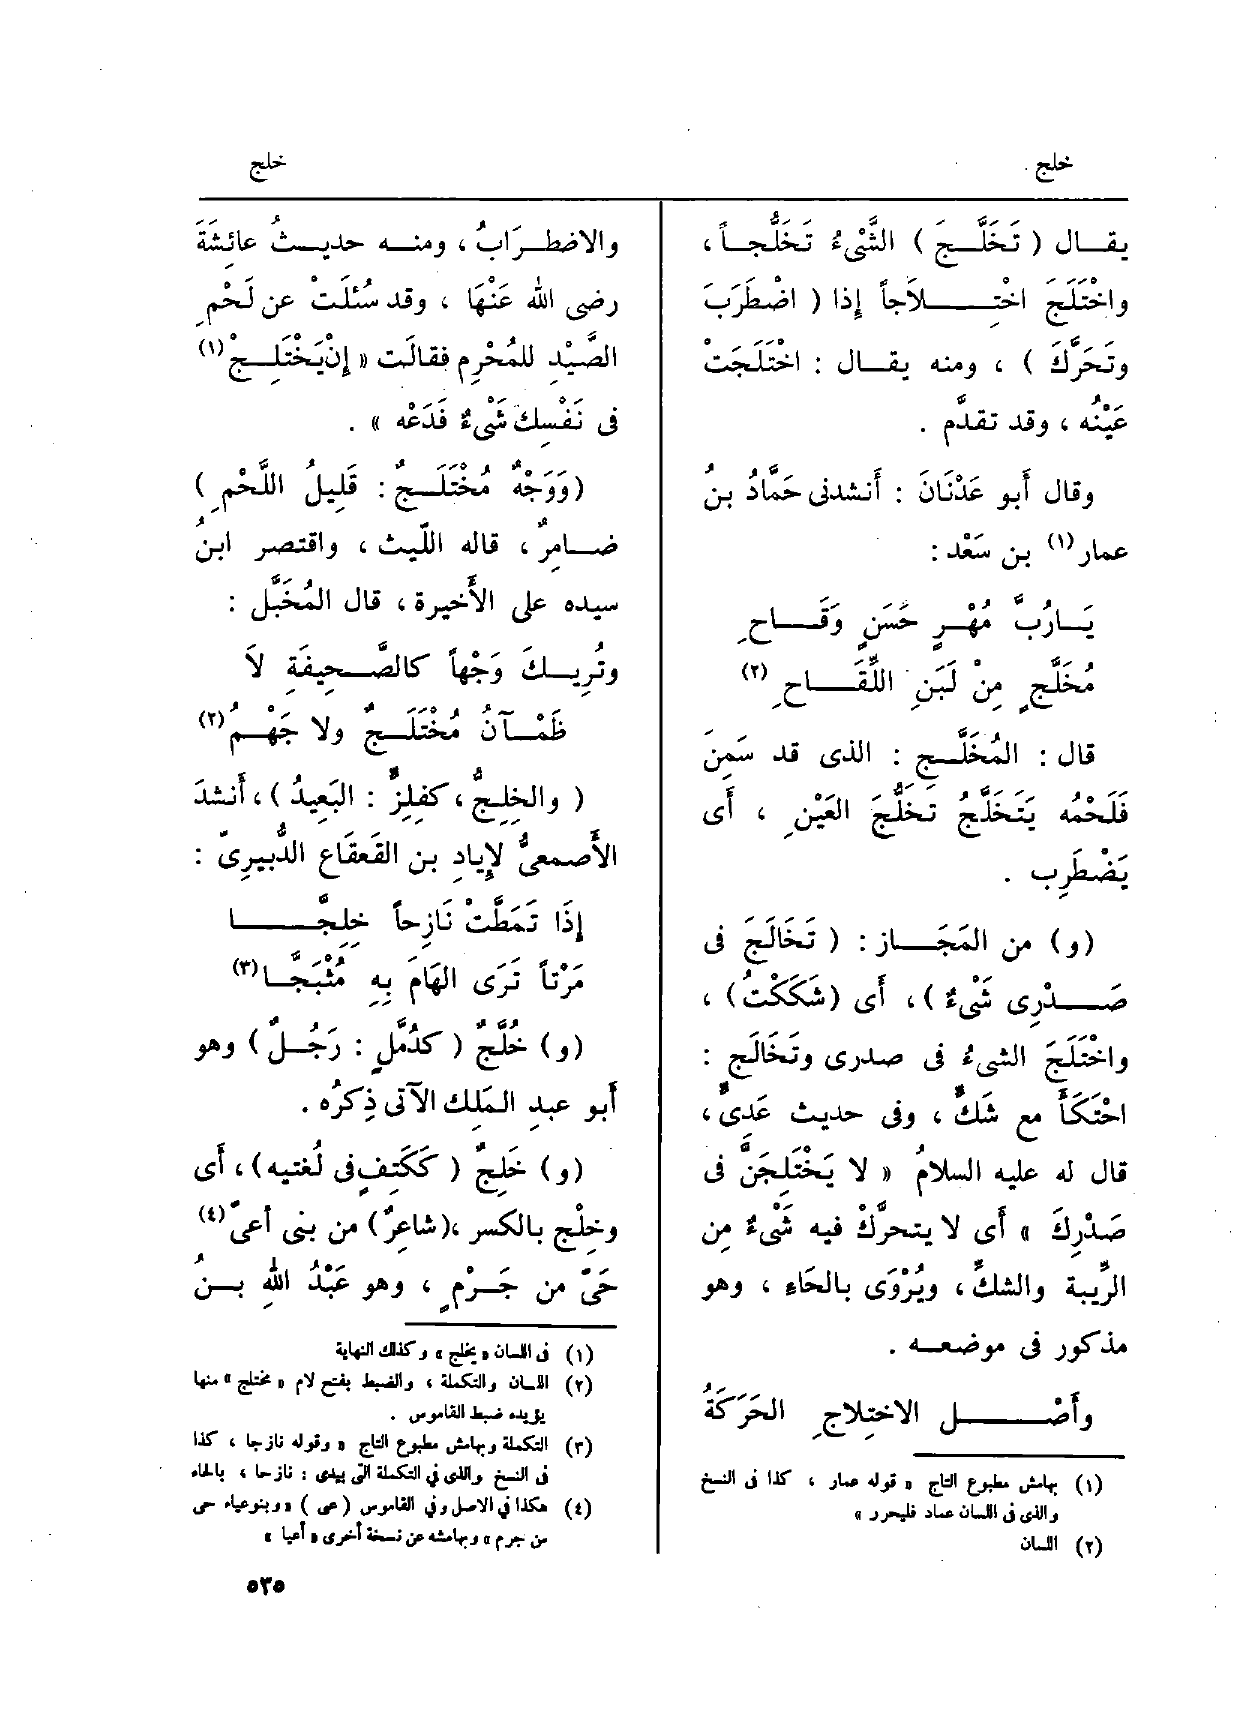 خلج
خلج
يقال ( تَخَلَّجَ ) الشَّيْءُ تَخَلُّجاً ،
واخْتَلَجَ اخْتِلَاجاً إِذا ( اضْطَرَبَ
وتَحَرَّكَ ) ، ومنه يقال : اخْتَلَجَتْ
عَيْنُه ، وقد تقدَّم .
وقال أَبو عَدْنَانَ : أَنشدنى حَمَّادُ بنُ
عمار (١) بن سَعْد :
يَارُبَّ مُهْرٍ حَسَنٍ وَقَاحِ
مُخَلَّجٍ مِنْ لَبَنِ اللِّقَاحِ (٢)
قال : المُخَلَّج : الذى قد سَمِنَ
فَلَحْمُه يَتَخَلَّجُ تَخَلُّجَ العَيْنِ ، أَى
يَضْطَرِب .
(و) من المَجَاز : ( تَخَالَجَ فى
صَدْرِى شَىْءٌ ) ، أَى (شَكَكْتُ) ،
واخْتَلَجَ الشىءُ فى صدرى وتَخَالَج :
احْتَكَأَ مع شَكٍّ ، وفى حديث عَدِىٍّ ،
قال له عليه السلامُ « لا يَخْتَلِجَنَّ فى
صَدْرِكَ » أَى لا يتحرَّكْ فيه شَىْءٌ من
الرِّيبة والشكِّ ، ويُرْوَى بالحَاءِ ، وهو
مذكور فى موضعه .
وأَصْل الاختِلاجِ الحَرَكَةُ
(١) بهامش مطبوع التاج « قوله عمار ، كذا فى النسخ
والذى فى اللسان عماد فليحرر »
(٢) اللسان
والاضطِرَابُ ، ومنه حديثُ عائِشَةَ
رضى الله عَنْهَا ، وقد سُئلَتْ عن لَحْمِ
الصَّيْدِ للمُحْرِم فقالَت « إِنْ يَخْتَلِجْ (١)
فى نَفْسِك شَىْءٌ فَدَعْه » .
(وَوَجْهٌ مُخْتَلَجٌ : قَلِيلُ اللَّحْمِ )
ضامِرٌ ، قاله اللّيث ، واقتصر ابنُ
سيده على الأَخيرة ، قال المُخَبَّل :
وتُرِيكَ وَجْهاً كالصَّحِيفَةِ لاَ
ظَمْآنُ مُخْتَلَجٌ ولا جَهْمُ (٢)
( والخِلِجُّ ، كفِلِزٍّ : البَعِيدُ ) ، أَنشدَ
الأَصمعىُّ لإِيادِ بن القَعقاع الدُّبيرىّ :
إِذَا تَمَطَّتْ نَازِحاً خِلِجَّا
مَرْتاً تَرَى الهَامَ بِهِ مُثْبَجَّا (٣)
(و) خُلَّجٌ ( كدُمَّلٍ : رَجُلٌ ) وهو
أَبو عبد المَلِك الآتى ذِكرُه .
(و) خَلِجٌ ( كَكَتِفٍ فى لُغتيه ) ، أَى
وخِلْج بالكسر ، (شاعِرٌ) من بنى أَعىّ (٤)
حَىّ من جَرْمٍ ، وهو عَبْدُ اللهِ بنُ
(١) فى اللسان « يخلج » وكذلك النهاية
(٢) اللسان والتكملة ، والضبط بفتح لام « مختلج » منها
يؤيده ضبط القاموس .
(٣) التكملة وبهامش مطبوع التاج « وقوله نازحا ، كذا
فى النسخ والذى في التكملة التى بيدى : نازحا ، بالحاء
(٤) هكذا في الاصل وفي القاموس ( عى ) « وبنوعياء حى
من جرم » وبهامشه عن نسخة أخرى « أعيا »
٥٣٥